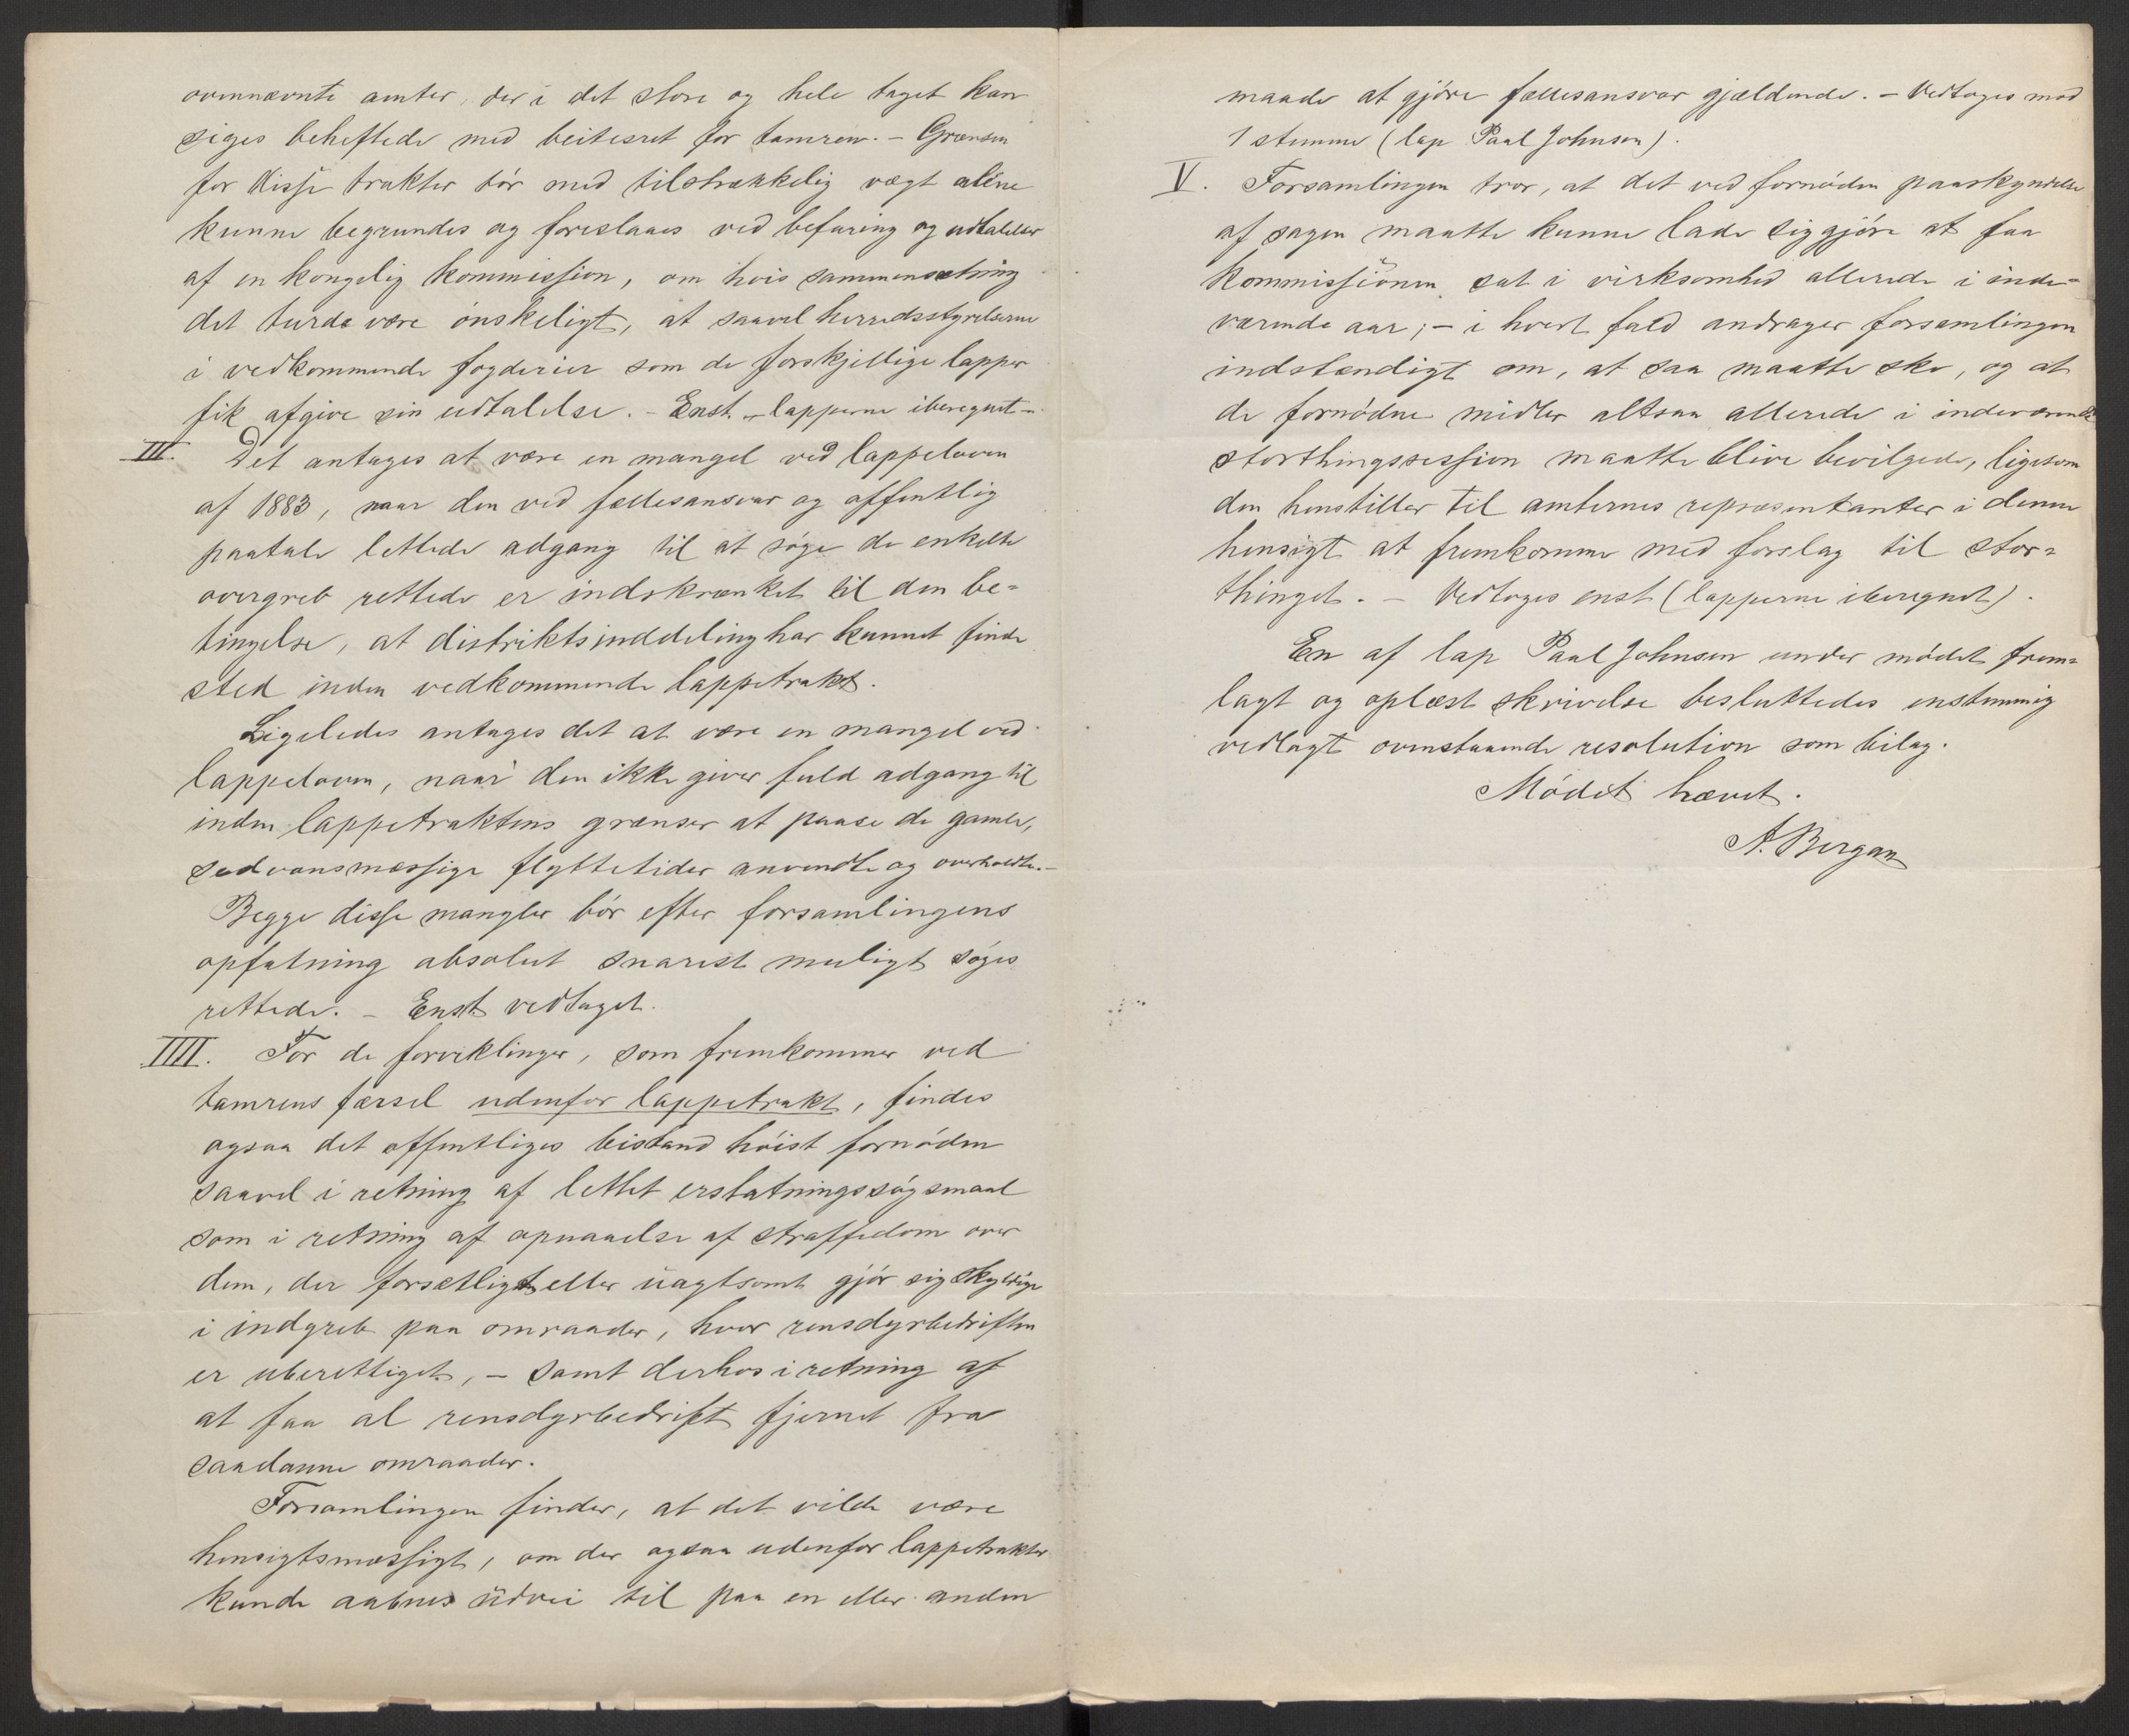 ovennævnte amter, der i det store og hele taget kan
siges beheftede med beitesret for tamren. – Grænsen
for disse trakter bör med tilstrækkelig vægt alene
kunne begrundes og foreslaaes ved befaring og udtalelser
af en kongelig kommission, om hvis sammensætning
det turde være ønskeligt, at saavel herredsstyrelserne
i vedkommende fogderier som de forskjellige lapper
fik afgive sin udtalelse. – Enst. – lapperne iberegnet –
III. Det antages at være en mangel ved lappeloven
af 1883, naar den ved fællesansvar og offentlig
paatale lettede adgang til at söge de enkelte
overgreb rettede er indskrænket til den be=
tingelse, at distriktsinddeling har kunnet finde
sted inden vedkommende lappetrakt.
Ligeledes antages det at være en mangel ved
lappeloven, naar den ikke giver fuld adgang til
inden lappetraktens grænser at paase de gamle,
sedvansmæssige flyttetider anvendte og overholdte. –
Begge disse mangler bör efter forsamlingens
opfatning absolut snarest muligt söges
rettede. – Enst. vedtaget.
IIII. For de forviklinger, som fremkommer ved
tamrens færsel udenfor lappetrakt, findes
ogsaa det offentliges bistand höist fornöden
saavel i retning af lettet erstatningssögsmaal
som i retning af opnaaelse af straffedom over
dem, der forsætligt eller uagtsomt gjör sig skyldige
i indgreb paa omraader, hvor rensdyrbedriften
er uberettiget, – samt derhos i retning af
at faa al rensdyrbedrift fjernet fra
saadanne omraader.
Forsamlingen finder, at det vilde være
hensigtsmæssigt, om der ogsaa udenfor lappetrakter
kunde aabnes udvei til paa en eller anden
maade at gjöre fællesansvar gjældende. – Vedtoges mod
1 stemme (lap Paal Johnsen).
V. Forsamlingen tror, at det ved fornöden paaskyndelse
af sagen maatte kunne lade sig gjöre at faa
kommissionen sat i virksomhed allerede i inde=
værende aar; – i hvert fald andrager forsamlingen
indstændigt om, at saa maatte ske, og at
de fornödne midler altsaa allerede i indeværende
storthingssession maatte blive bevilgede, ligesom
den henstiller til amternes repræsentanter i denne
hensigt at fremkomme med forslag til stor=
thinget. – Vedtoges enst (lapperne iberegnet).
En af lap Paal Johnsen under mödet frem=
lagt og oplæst skrivelse besluttedes enstemmig
vedlagt ovenstaaende resolution som bilag.
Mödet hævet.
A. Bergan